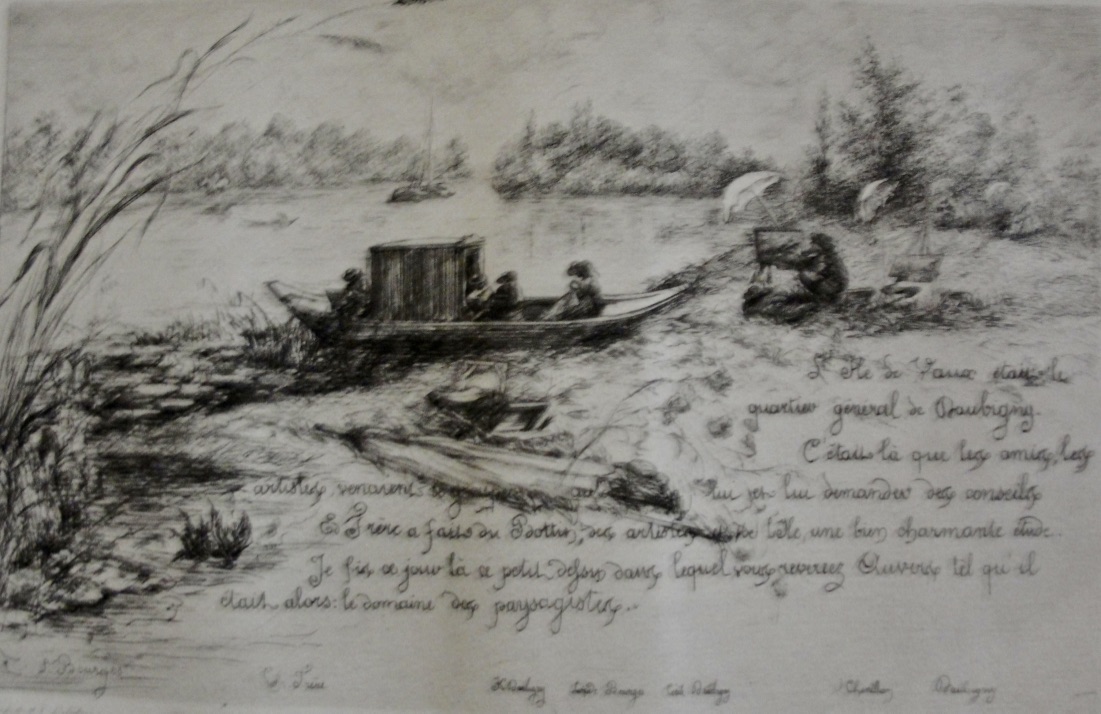 L'Ile de Vaux était le
quartier général de Daubigny.
C'était là que les amis, les
artistes, venaient se lui et lui demander des conseils
E. Frère a fait du Bottin, des artistes et de l'île, une bien charmante étude..
Je fis ce jour là ce petit dessin dans lequel vous reverrez Auvers tel qu'il
était alors: le domaine des paysagistes..
L. d. Bourges
E. Frère
K. Daubigny Léonide Bourges Daubigny
Daubigny